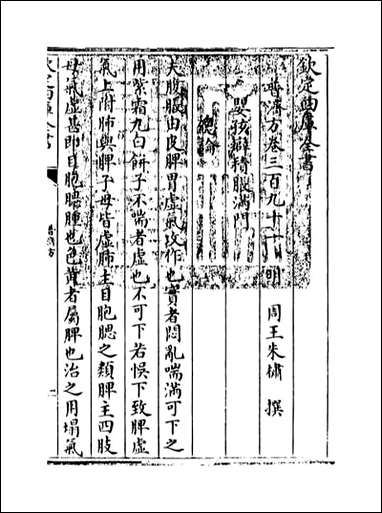 欽定四庫全書
普濟方卷三百九十一　明　周王朱橚　撰
嬰孩癖積脹滿門
總論
夫腹脹由皮脾胃虛氣攻作也實者悶亂喘滿可下之
用紫霜丸白餅子不喘者虛也不可下若悮下致脾虛
氣上附肺與脾子母皆虛肺主目胞腮之類脾主四肢
母氣虛甚即目胞腮腫也色黃者屬脾也治之用塌氣
欽定四庫全書
普濟方